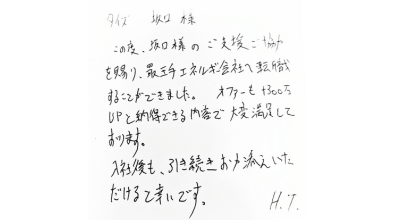 タイズ 坂口 様
この度、坂口様のご支援ご協力
を賜り、最大手エネルギー会社へ転職
することができました。 オファーも+300万
UPと納得できる内容で大変満足して
おります。
入社後も、引き続きお力添えいた
だけると幸いです。
H.T.